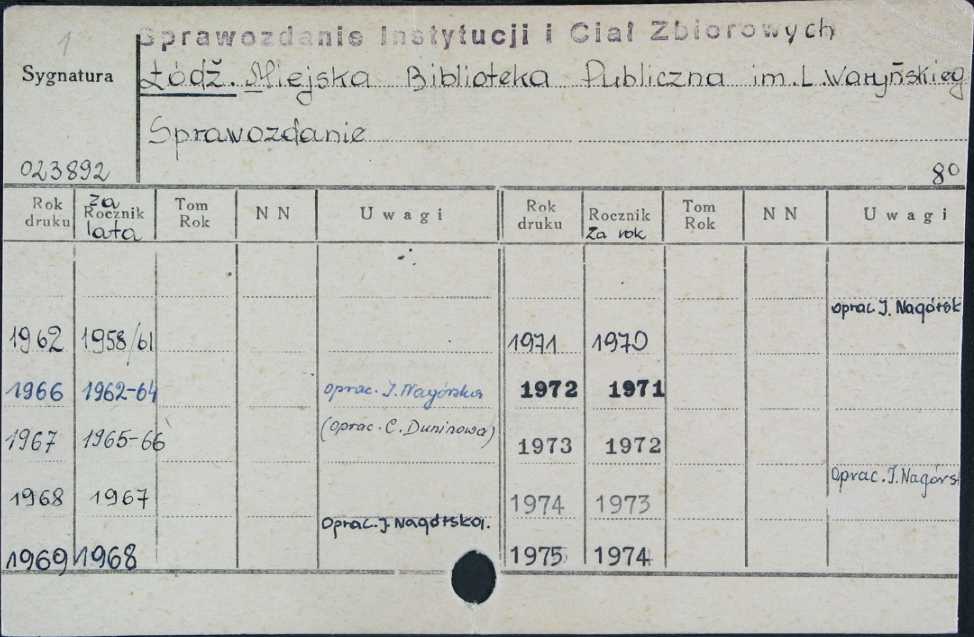 1
Sprawozdanie Instytucji i Ciał Zbiorowych
Sygnatura
Łódź. Miejska Biblioteka Publiczna im. L. Waryńskieg
Sprawozdanie
023892
8º
Rok druku | za Rocznik lata | Tom Rok | N N | Uwagi | Rok druku | Rocznik za rok | Tom Rok | N N | Uwagi
oprac J. Nagórsk
1962 1958/61 1971 1970
1966 1962-64 oprac. J. Nagórska 1972 1971
1967 1965-66 (oprac. C. Duninowa) 1973 1972
oprac. J. Nagórs
1968 1967 1974 1973
oprac. J. Nagórska.
1969 1968 1975 1974